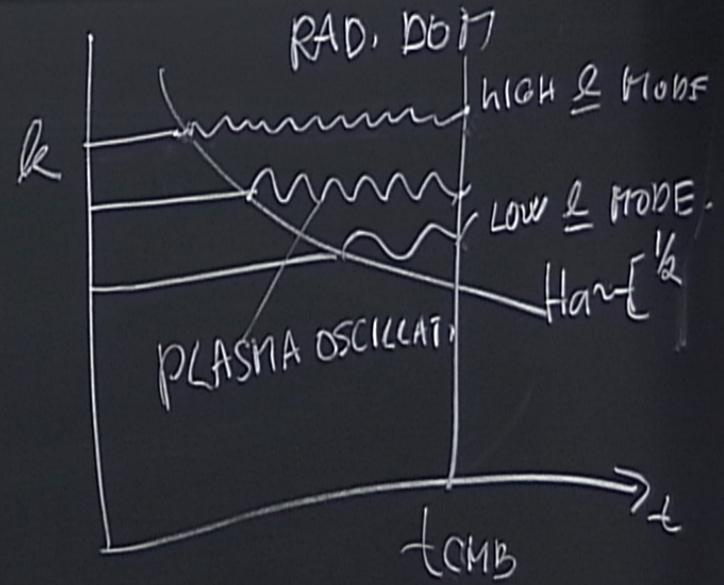 RAD. DOM
HIGH l MODE
k
LOW l MODE.
Ha~t^1/2
PLASMA OSCILLAT.
t
tCMB